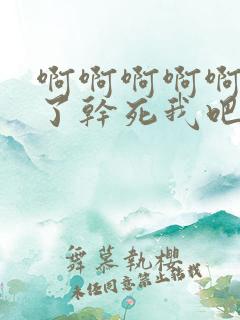 啊啊啊啊啊
了幹死我吧
舞慕執櫻
未经同意禁止转载